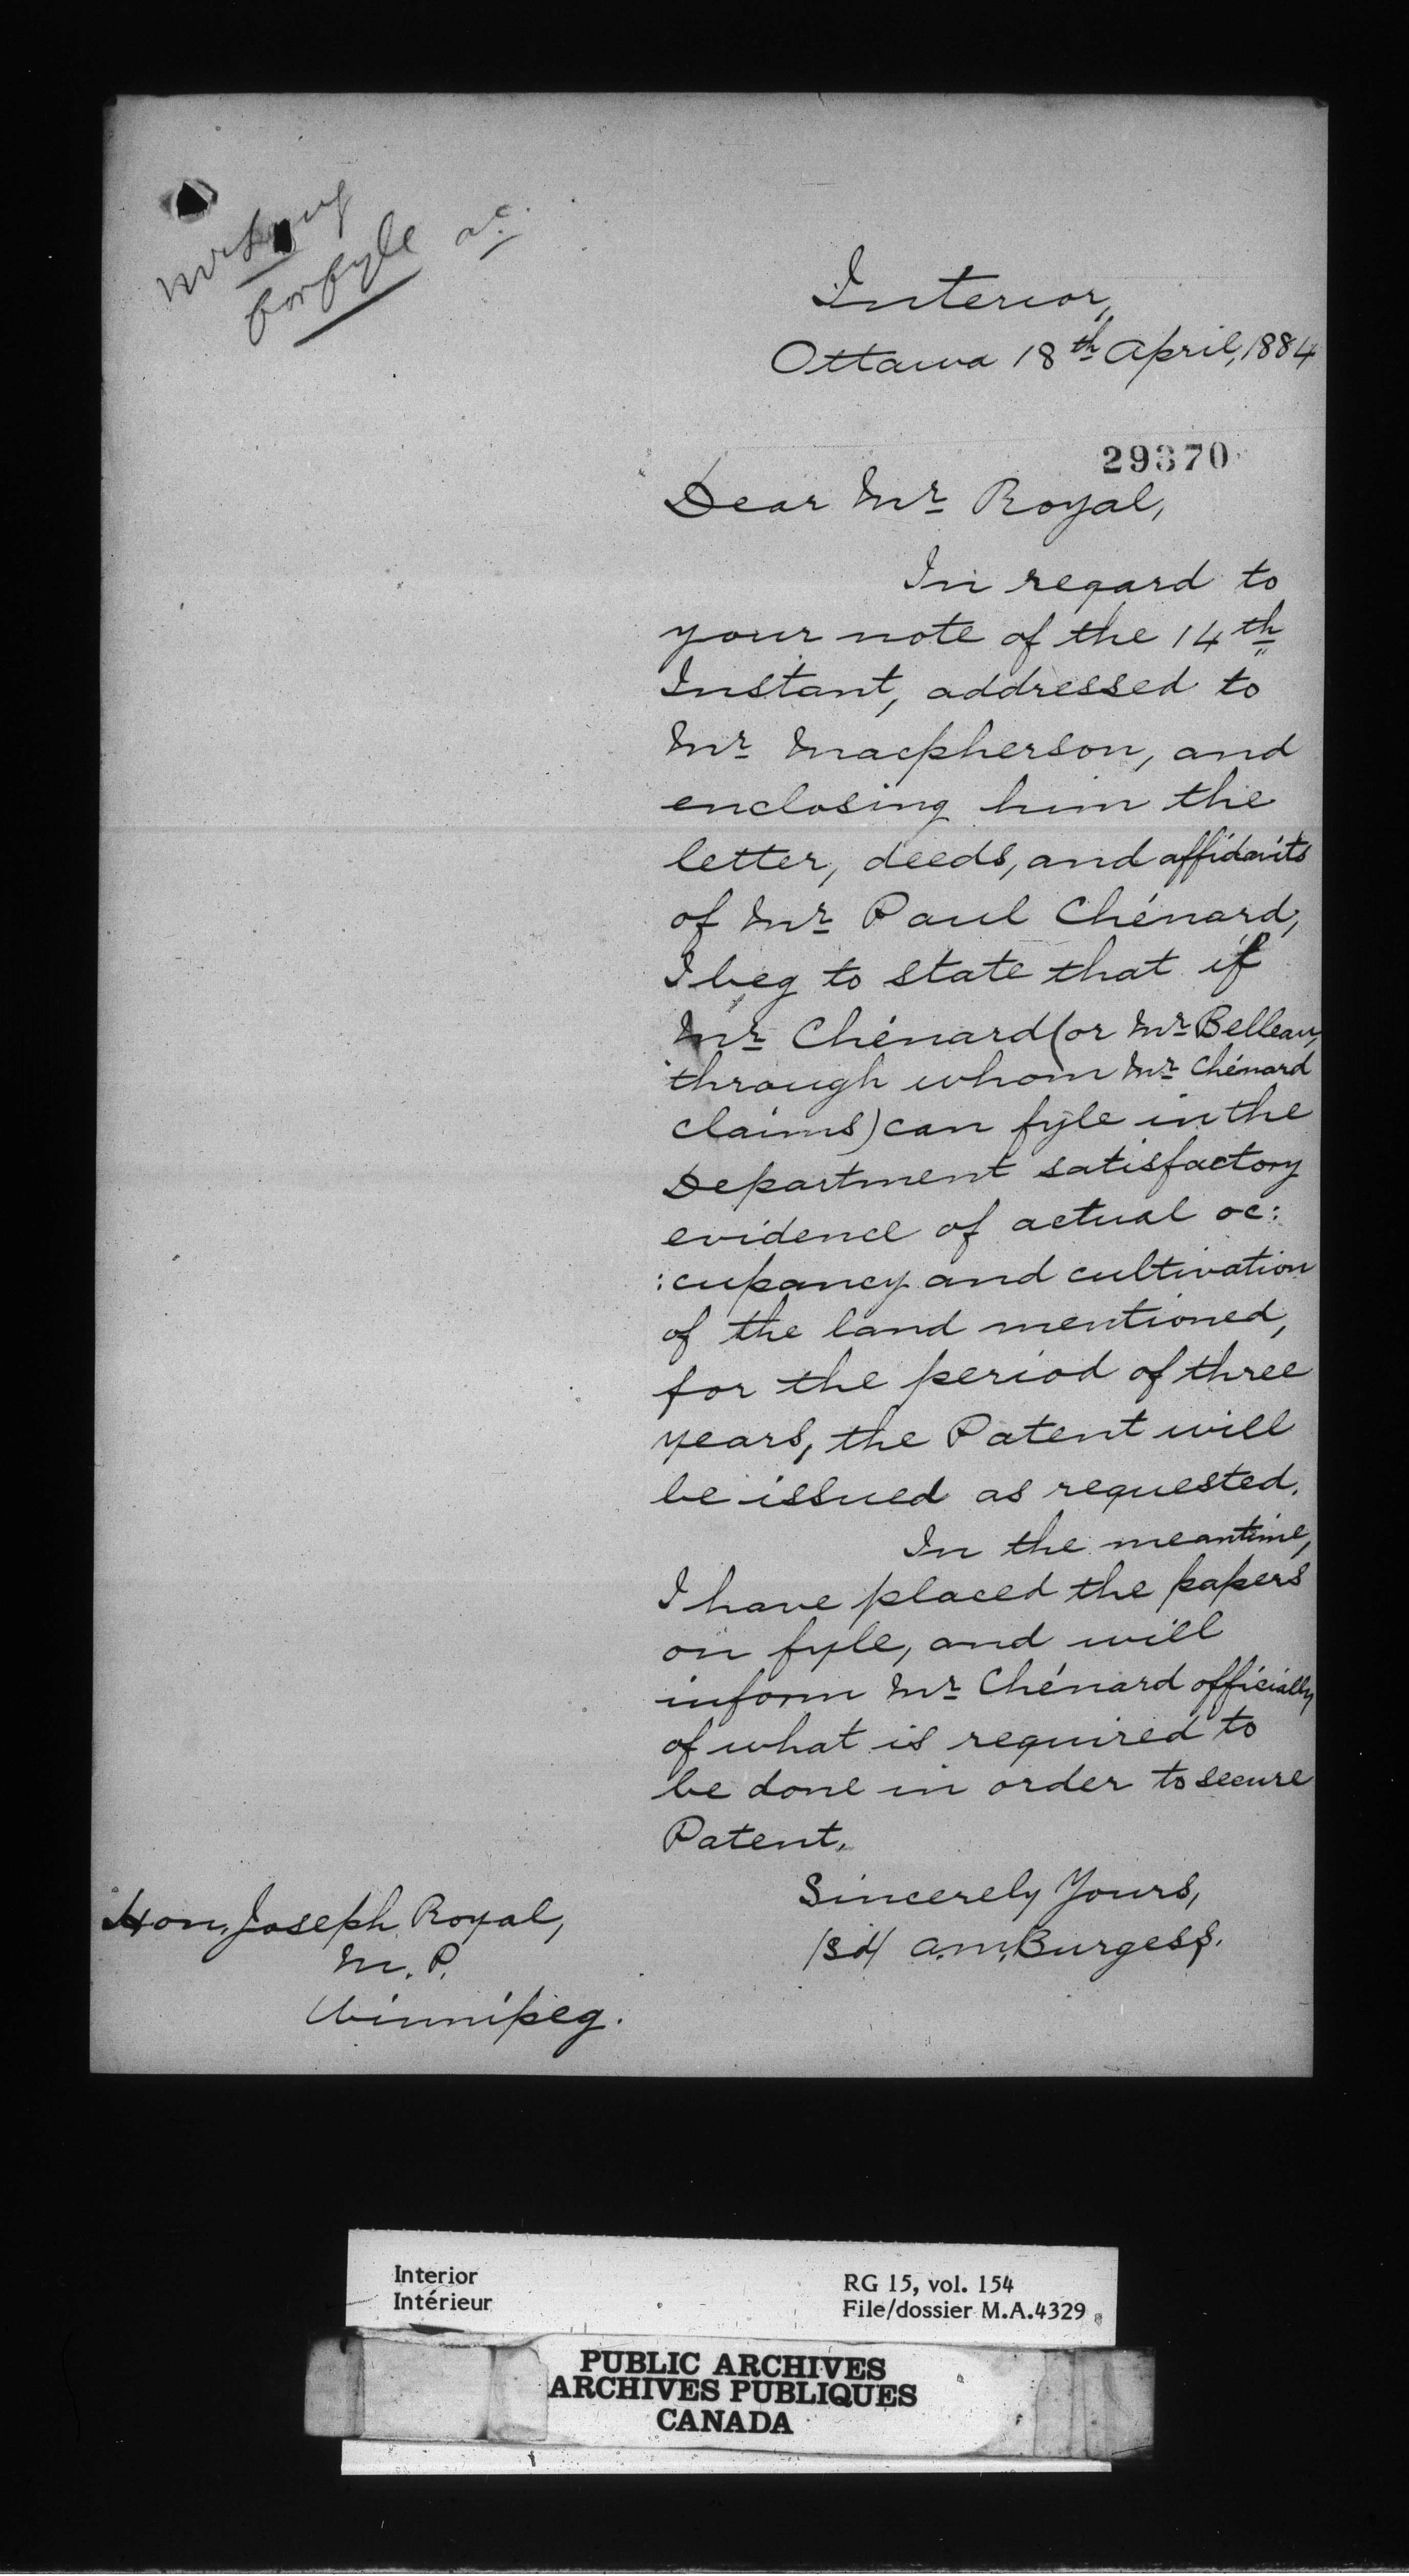 for fyle
Interior,
Ottawa 18th April, 1884
29370
Dear Mr Royal,
In regard to
your note of the 14th
Instant, addressed to
Mr Macpherson, and
enclosing him the
letter, deeds, and affidavits
of Mr Paul Chénard,
I beg to state that if
Mr Chénard (or Mr Belleau,
through whom Mr Chénard
claims) can fyle in the
Department satisfactory
evidence of actual oc:
:cupancy and cultivation
of the land mentioned,
for the period of three
years, the Patent will
be issued as requested.
In the meantime,
I have placed the papers
on fyle, and will
inform Mr Chénard officially
of what is required to
be done in order to secure
Patent.
Sincerely Yours,
/sd/ A.M. Burgess.
Hon. Joseph Royal,
M.P.
Winnipeg.
Interior
Intérieur
RG 15, vol. 154
File/dossier M.A.4329
PUBLIC ARCHIVES
ARCHIVES PUBLIQUES
CANADA